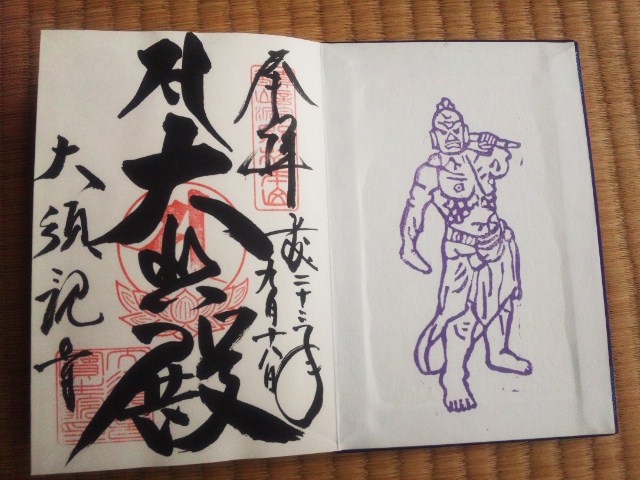 奉拝
平成二十三年
九月十八日
大悲殿
大須観音